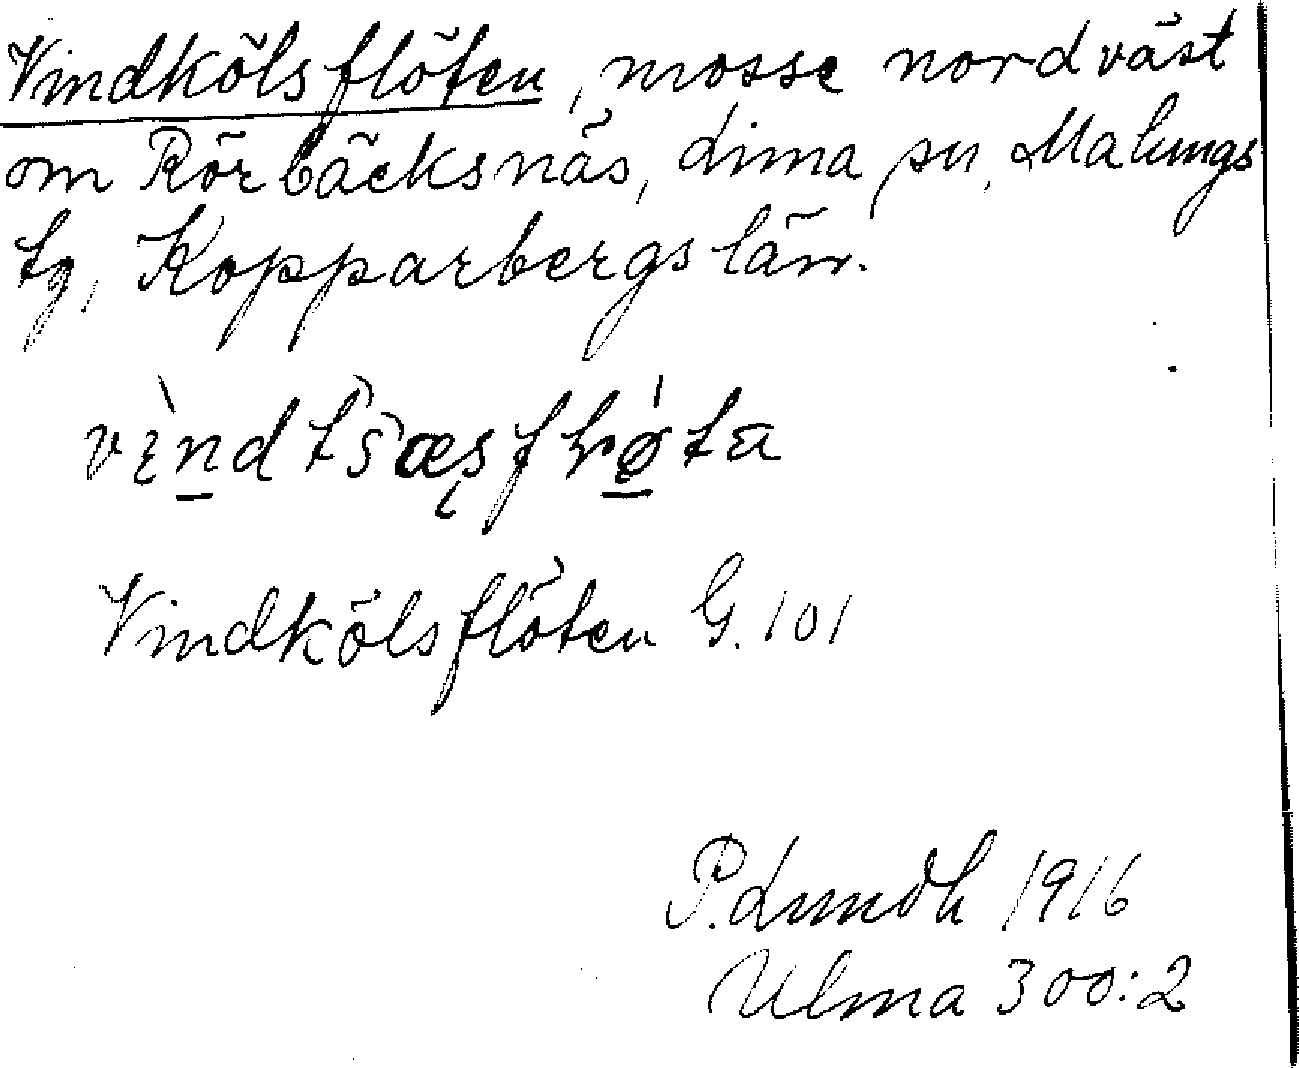 Vindkölsflöten, mosse nordväst
om Rörbäcksnäs, Lima sn, Malungs
tg, Kopparbergs län.
Vindkölsflöten G. 101
P. Lundh 1916
Ulma 300:2